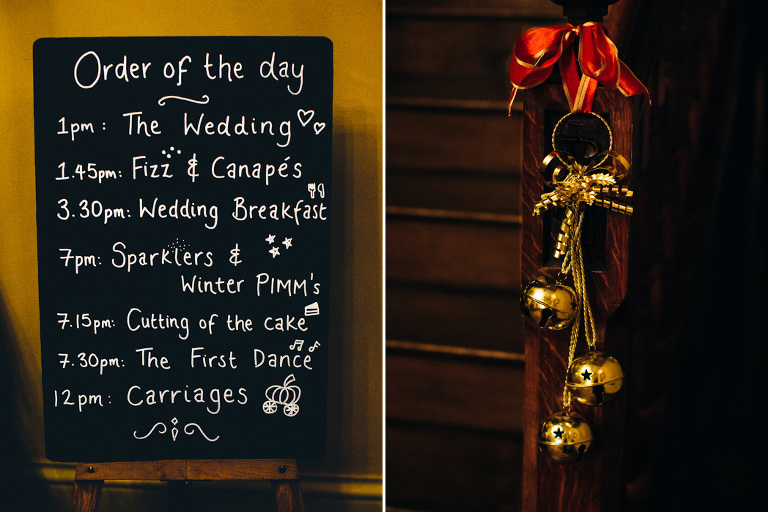 Order of the day
1pm: The Wedding
1.45pm: Fizz & Canapés
3.30pm: Wedding Breakfast
7pm: Sparklers &
Winter PIMM's
7.15pm: Cutting of the cake
7.30pm: The First Dance
12pm: Carriages